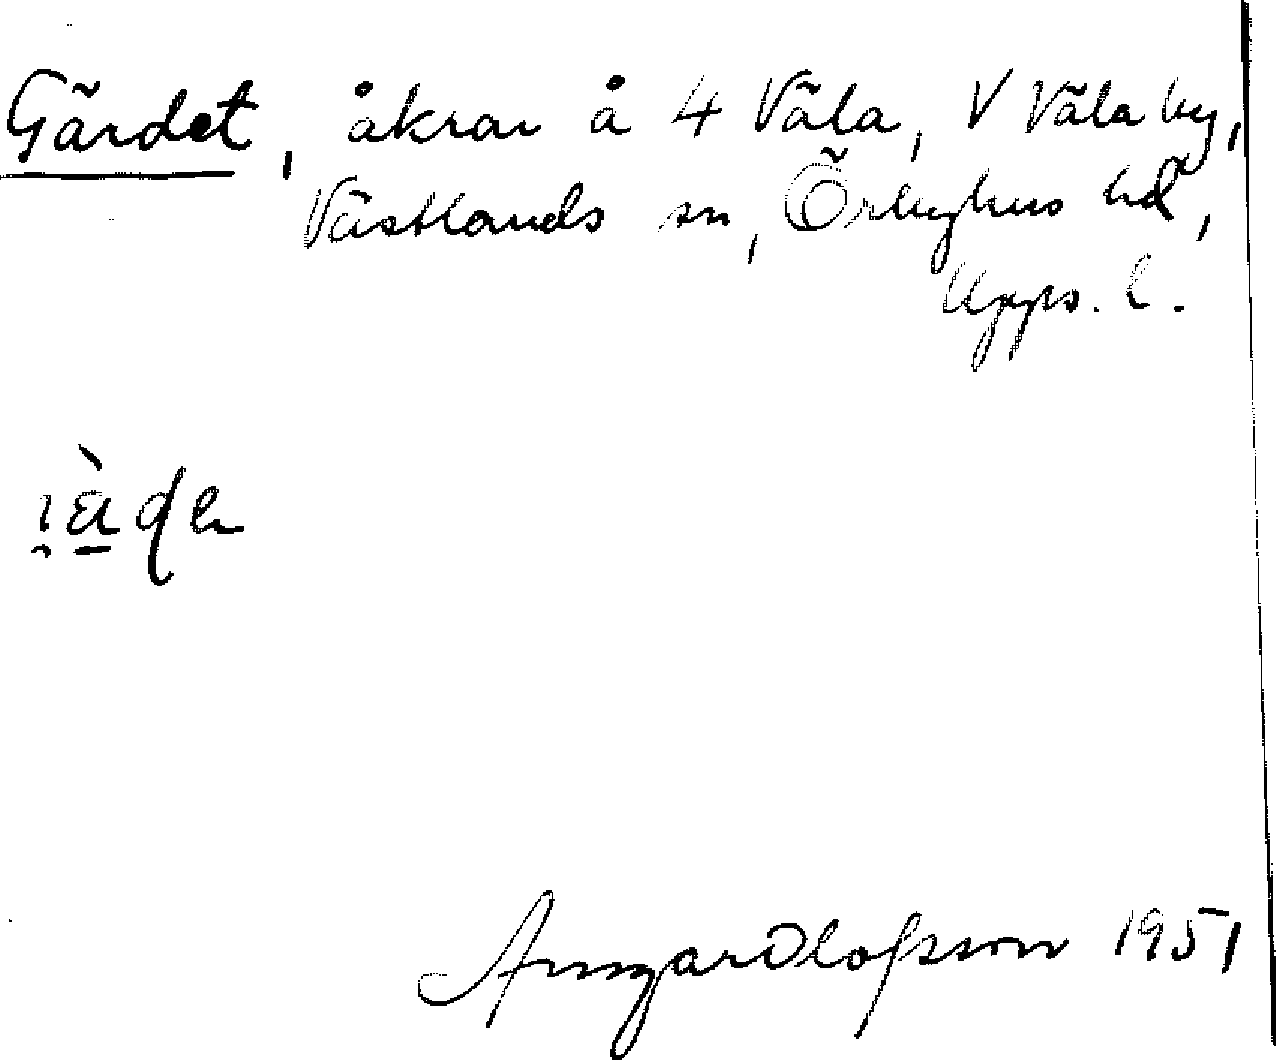 Gärdet, åkrar å 4 Väla, V Väla by,
Västlands sn, Örbyhus hd,
Upps. l.
Ansgar Olofsson 1951